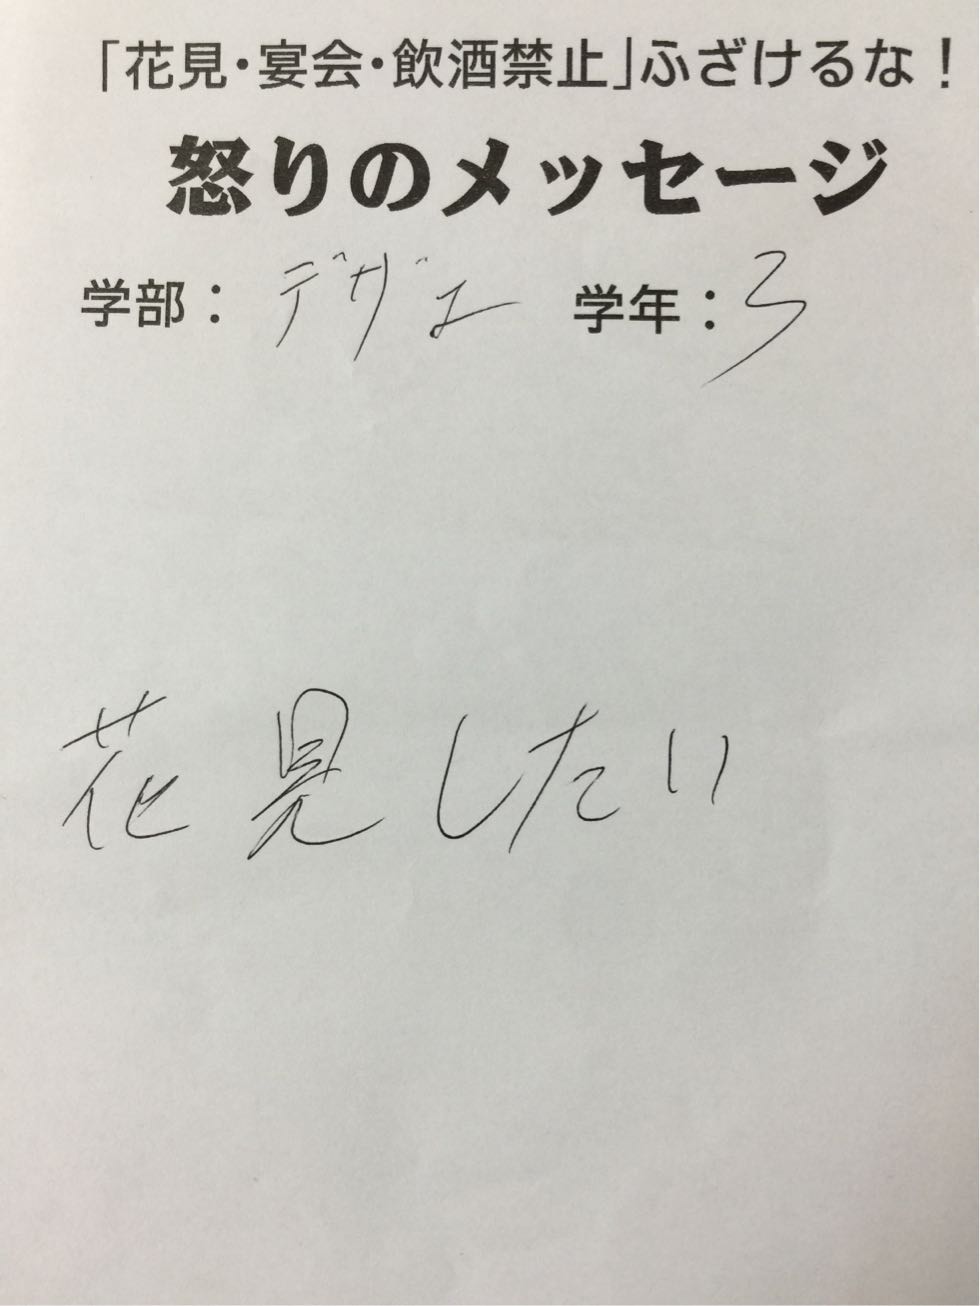 「花見・宴会・飲酒禁止」ふざけるな！
怒りのメッセージ
学部： デザエ 学年：3
花見したい